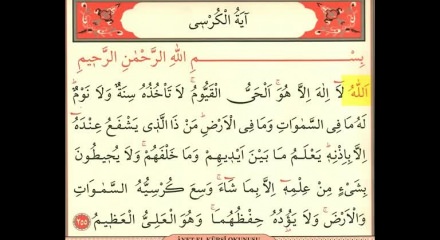 آيَةُ الْكُرْسِى
بِسْــــــــمِ اللهِ الرَّحْمٰنِ الرَّحِيمِ
اَللهُ لَٓا اِلٰهَ اِلَّا هُوَۚ اَلْحَىُّ الْقَيُّومُۚ لَا تَأْخُذُهُ سِنَةٌ وَلَا نَوْمٌۜ
لَهُ مَا فِى السَّمٰوَاتِ وَمَا فِى الْاَرْضِۜ مَنْ ذَا الَّذٖى يَشْفَعُ عِنْدَهُٓ
اِلَّا بِاِذْنِهٖۜ يَعْلَمُ مَا بَيْنَ اَيْدٖيهِمْ وَمَا خَلْفَهُمْۚ وَلَا يُحٖيطُونَ
بِشَىْءٍ مِنْ عِلْمِهٖٓ اِلَّا بِمَا شَٓاءَۚ وَسِعَ كُرْسِيُّهُ السَّمٰوَاتِ
وَالْاَرْضَۚ وَلَا يَؤُدُهُ حِفْظُهُمَاۚ وَهُوَ الْعَلِىُّ الْعَظٖيمُ ٢٥٥
AYETEL KÜRSİ OKUNUŞU